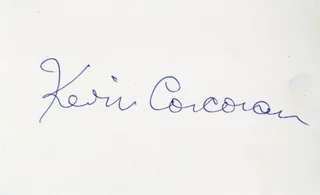 Kevin Corcoran